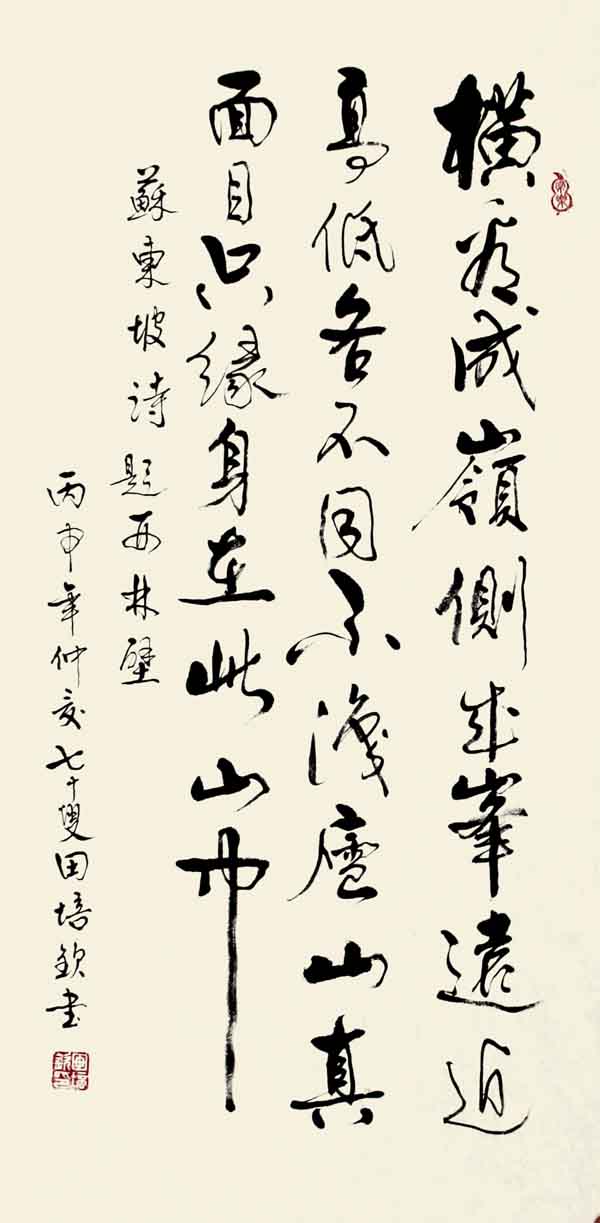 橫看成嶺側成峯遠近
高低各不同不識廬山真
面目只緣身在此山中
蘇東坡詩題西林壁
丙申年仲夏七十叟田培欽书